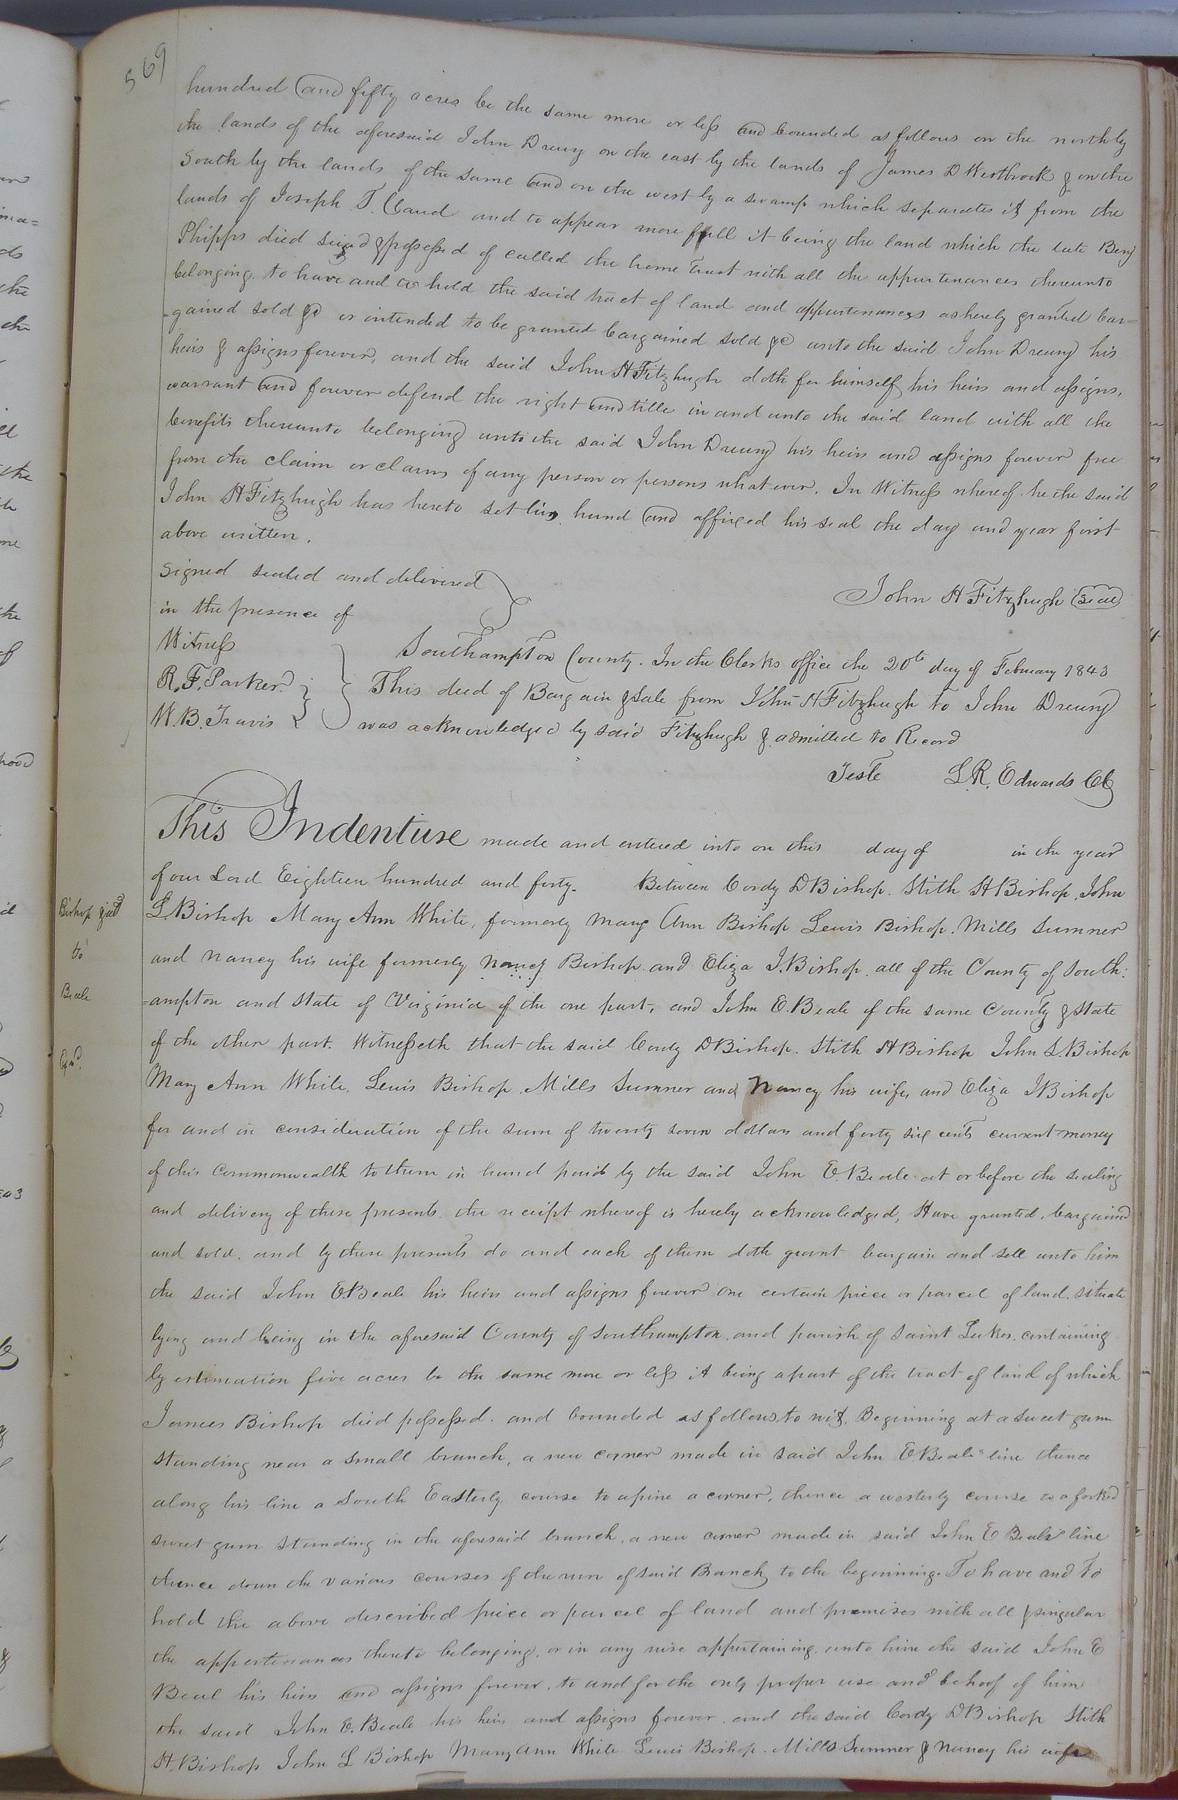 569
hundred and fifty acres be the same more or less and bounded as follows on the north by
the lands of the aforesaid John Drewry on the east by the lands of James D Westbrook & on the
South by the lands of the same and on the west by a swamp which separates it from the
lands of Joseph T. Claud and to appear more full it being the land which the late Benj
Phipps died seized & possessed of called the home tract with all the appurtenances thereunto
belonging, to have and to hold the said tract of land and appurtenances as hereby granted bar-
-gained sold &c or intended to be granted bargained sold &c unto the said John Drewry his
heirs & assigns forever, and the said John H Fitzhugh doth for himself his heirs and assigns,
warrant and forever defend the right and title in and unto the said land with all the
benefits thereunto belonging unto the said John Drewry his heirs and assigns forever free
from the claim or claims of any person or persons whatever. In Witness whereof he the said
John H Fitzhugh has hereto set his hand and affixed his seal the day and year first
above written.
Signed sealed and delivered
in the presence of
John H Fitzhugh Seal
Witness
R. F. Parker
W. B. Travis
Southampton County. In the Clerks office the 20th day of February 1843
This deed of Bargain & Sale from John H Fitzhugh to John Drewry
was acknowledged by said Fitzhugh & admitted to Record
Teste L. R. Edwards Clk
This Indenture made and entered into on this day of in the year
of our Lord Eighteen hundred and forty- Between Cordy D Bishop. Stith H Bishop, John
L. Bishop Mary Ann White, formerly Mary Ann Bishop Lewis Bishop. Mills Sumner
and Nancy his wife formerly Nancy Bishop and Eliza J. Bishop. all of the County of South:
=ampton and State of Virginia of the one part, and John E. Beale of the same County & State
of the other part. Witnesseth that the said Cordy D Bishop. Stith H Bishop John L. Bishop
Mary Ann White. Lewis Bishop. Mills Sumner and Nancy his wife, and Eliza J Bishop
for and in consideration of the sum of twenty seven dollars and forty six cents current money
of this Commonwealth to them in hand paid by the said John E. Beale at or before the sealing
and delivery of these presents. the receipt whereof is hereby acknowledged, Have granted, bargained
and sold. and by these presents do and each of them doth grant bargain and sell unto him
the said John E Beale his heirs and assigns forever one certain piece or parcel of land. situate
lying and being in the aforesaid County of Southampton. and parish of Saint Lukes. containing
by estimation five acres be the same more or less it being a part of the tract of land of which
James Bishop died possessed. and bounded as follows to wit, Beginning at a sweet gum
standing near a small branch, a new corner made in said John E Beale's line thence
along his line a South Easterly course to a pine a corner, thence a westerly course to a forked
sweet gum standing in the aforesaid branch. a new corner made in said John E Beale's line
thence down the various courses of the run of said Branch, to the beginning. To have and to
hold the above described piece or parcel of land and premises with all & singular
the appertenances thereto belonging. or in any wise appertaining unto him the said John E
Beal his heirs and assigns forever, to and for the only proper use and behoof of him
the said John E. Beale his heirs and assigns forever. and the said Cordy D Bishop Stith
H. Bishop John L Bishop Mary Ann White Lewis Bishop. Mills Sumner & Nancy his wife
Bishop
to
Beale
Exd.